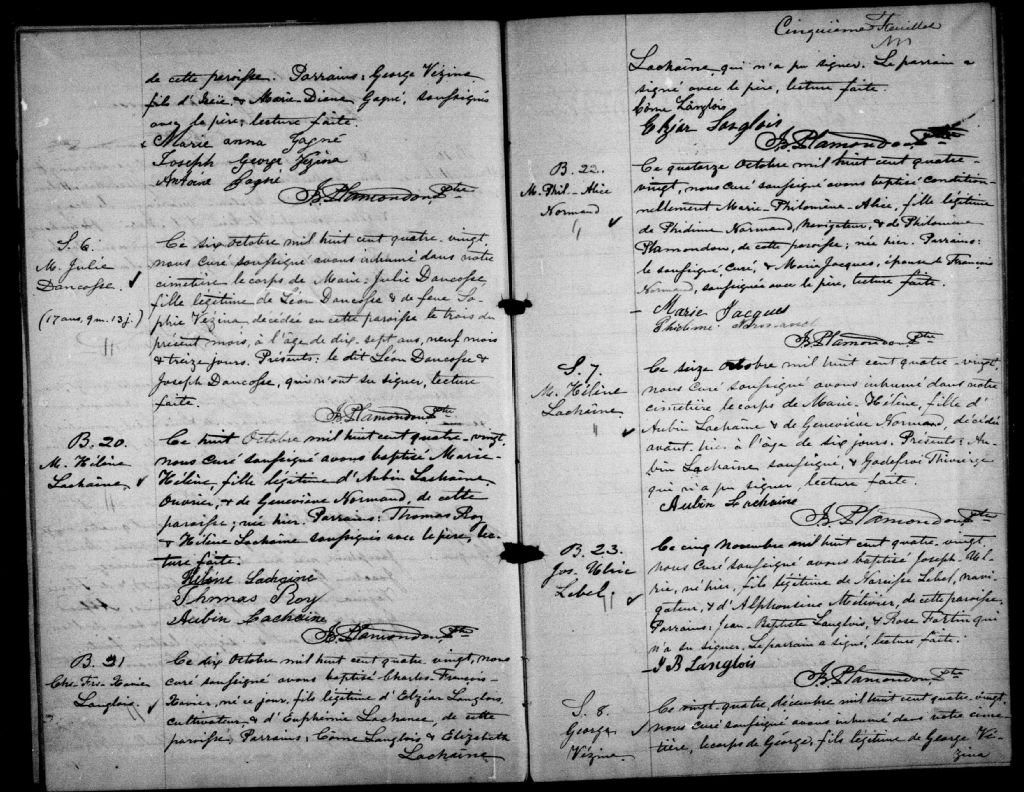 de cette paroisse. Parrains: George Vézina
fils d'Isaïe, & Marie-Diana Gagné, soussignés
avec le père; lecture faite.
Marie anna Gagné
Joseph George Vezina
Antoine Gagné
J.B. Plamondon, Ptre
S. 6.
M. Julie
Dancosse.
(17 ans, 9 m. 13 j.)
Ce six octobre mil huit cent quatre-vingt,
nous curé soussigné avons inhumé dans notre
cimetière le corps de Marie-Julie Dancosse,
fille légitime de Léon Dancosse & de feue So-
phie Vézina, décédée en cette paroisse le trois du
présent mois, à l'âge de dix-sept ans, neuf mois
& treize jours. Présents: le dit Léon Dancosse &
Joseph Dancosse, qui n'ont su signer, lecture
faite.
J.B. Plamondon, Ptre
B. 20.
M. Hélène
Lachaîne.
Ce huit Octobre mil huit cent quatre-vingt,
nous curé soussigné avons baptisé Marie-
Hélène, fille légitime d'Aubin Lachaîne,
Ouvrier, & de Geneviève Normand, de cette
paroisse; née hier. Parrains: Thomas Roy
& Hélène Lachaîne soussignés avec le père, lec-
ture faite.
Hélène Lachaine
Thomas Roy
Aubin Lachaine
J.B. Plamondon, Ptre
B. 21
Chs-Frs-Xavier
Langlois.
Ce dix Octobre mil huit cent quatre-vingt, nous
curé soussigné avons baptisé Charles-François-
Xavier, né ce jour, fils légitime d'Elzéar Langlois,
cultivateur, & d'Euphémie Lachance, de cette
paroisse, Parrains: Côme Langlois & Elizabeth
Lachaîne
Cinquième Feuillet
Lachaîne, qui n'a pu signer. Le parrain a
signé avec le père, lecture faite.
Côme Langlois
Elzéar Langlois
J.B. Plamondon, Ptre
B. 22.
M. Phil-Alice
Normand
Ce quatorze Octobre mil huit cent quatre-
vingt, nous curé soussigné avons baptisé condition-
nellement Marie-Philomène-Alice, fille légitime
de Phidime Normand, Navigateur, & de Philomène
Plamondon, de cette paroisse; née hier. Parrains:
le soussigné, Curé, & Marie Jacques, épouse de François
Normand, soussignée avec le père, lecture faite.
Marie Jacques
J.B. Plamondon, Ptre
S. 7.
M. Hélène
Lachaîne.
Ce seize octobre mil huit cent quatre-vingt,
nous curé soussigné avons inhumé dans notre
cimetière le corps de Marie-Hélène, fille d'
Aubin Lachaîne & de Geneviève Normand, décédée
avant-hier à l'âge de six jours. Présents: Au-
bin Lachaîne soussigné, & Godefroi Thivierge
qui n'a pu signer, lecture faite.
Aubin Lachaine
J.B. Plamondon, Ptre
B. 23.
Jos. Ulric
Lebel.
Ce cinq Novembre mil huit cent quatre-vingt,
nous curé soussigné avons baptisé Joseph-Ul-
ric, né hier, fils légitime de Narcisse Lebel, navi-
gateur, & d'Alphonsine Métivier, de cette paroisse,
Parrains: Jean-Baptiste Langlois, & Rose Fortin qui
n'a su signer. Le parrain a signé, lecture faite.
J B Langlois
J.B. Plamondon, Ptre
S. 8.
George
Vézina.
Ce vingt-quatre, décembre mil huit cent quatre-vingt,
nous curé soussigné avons inhumé dans notre cime-
tière, le corps de George, fils légitime de George Vé-
zina